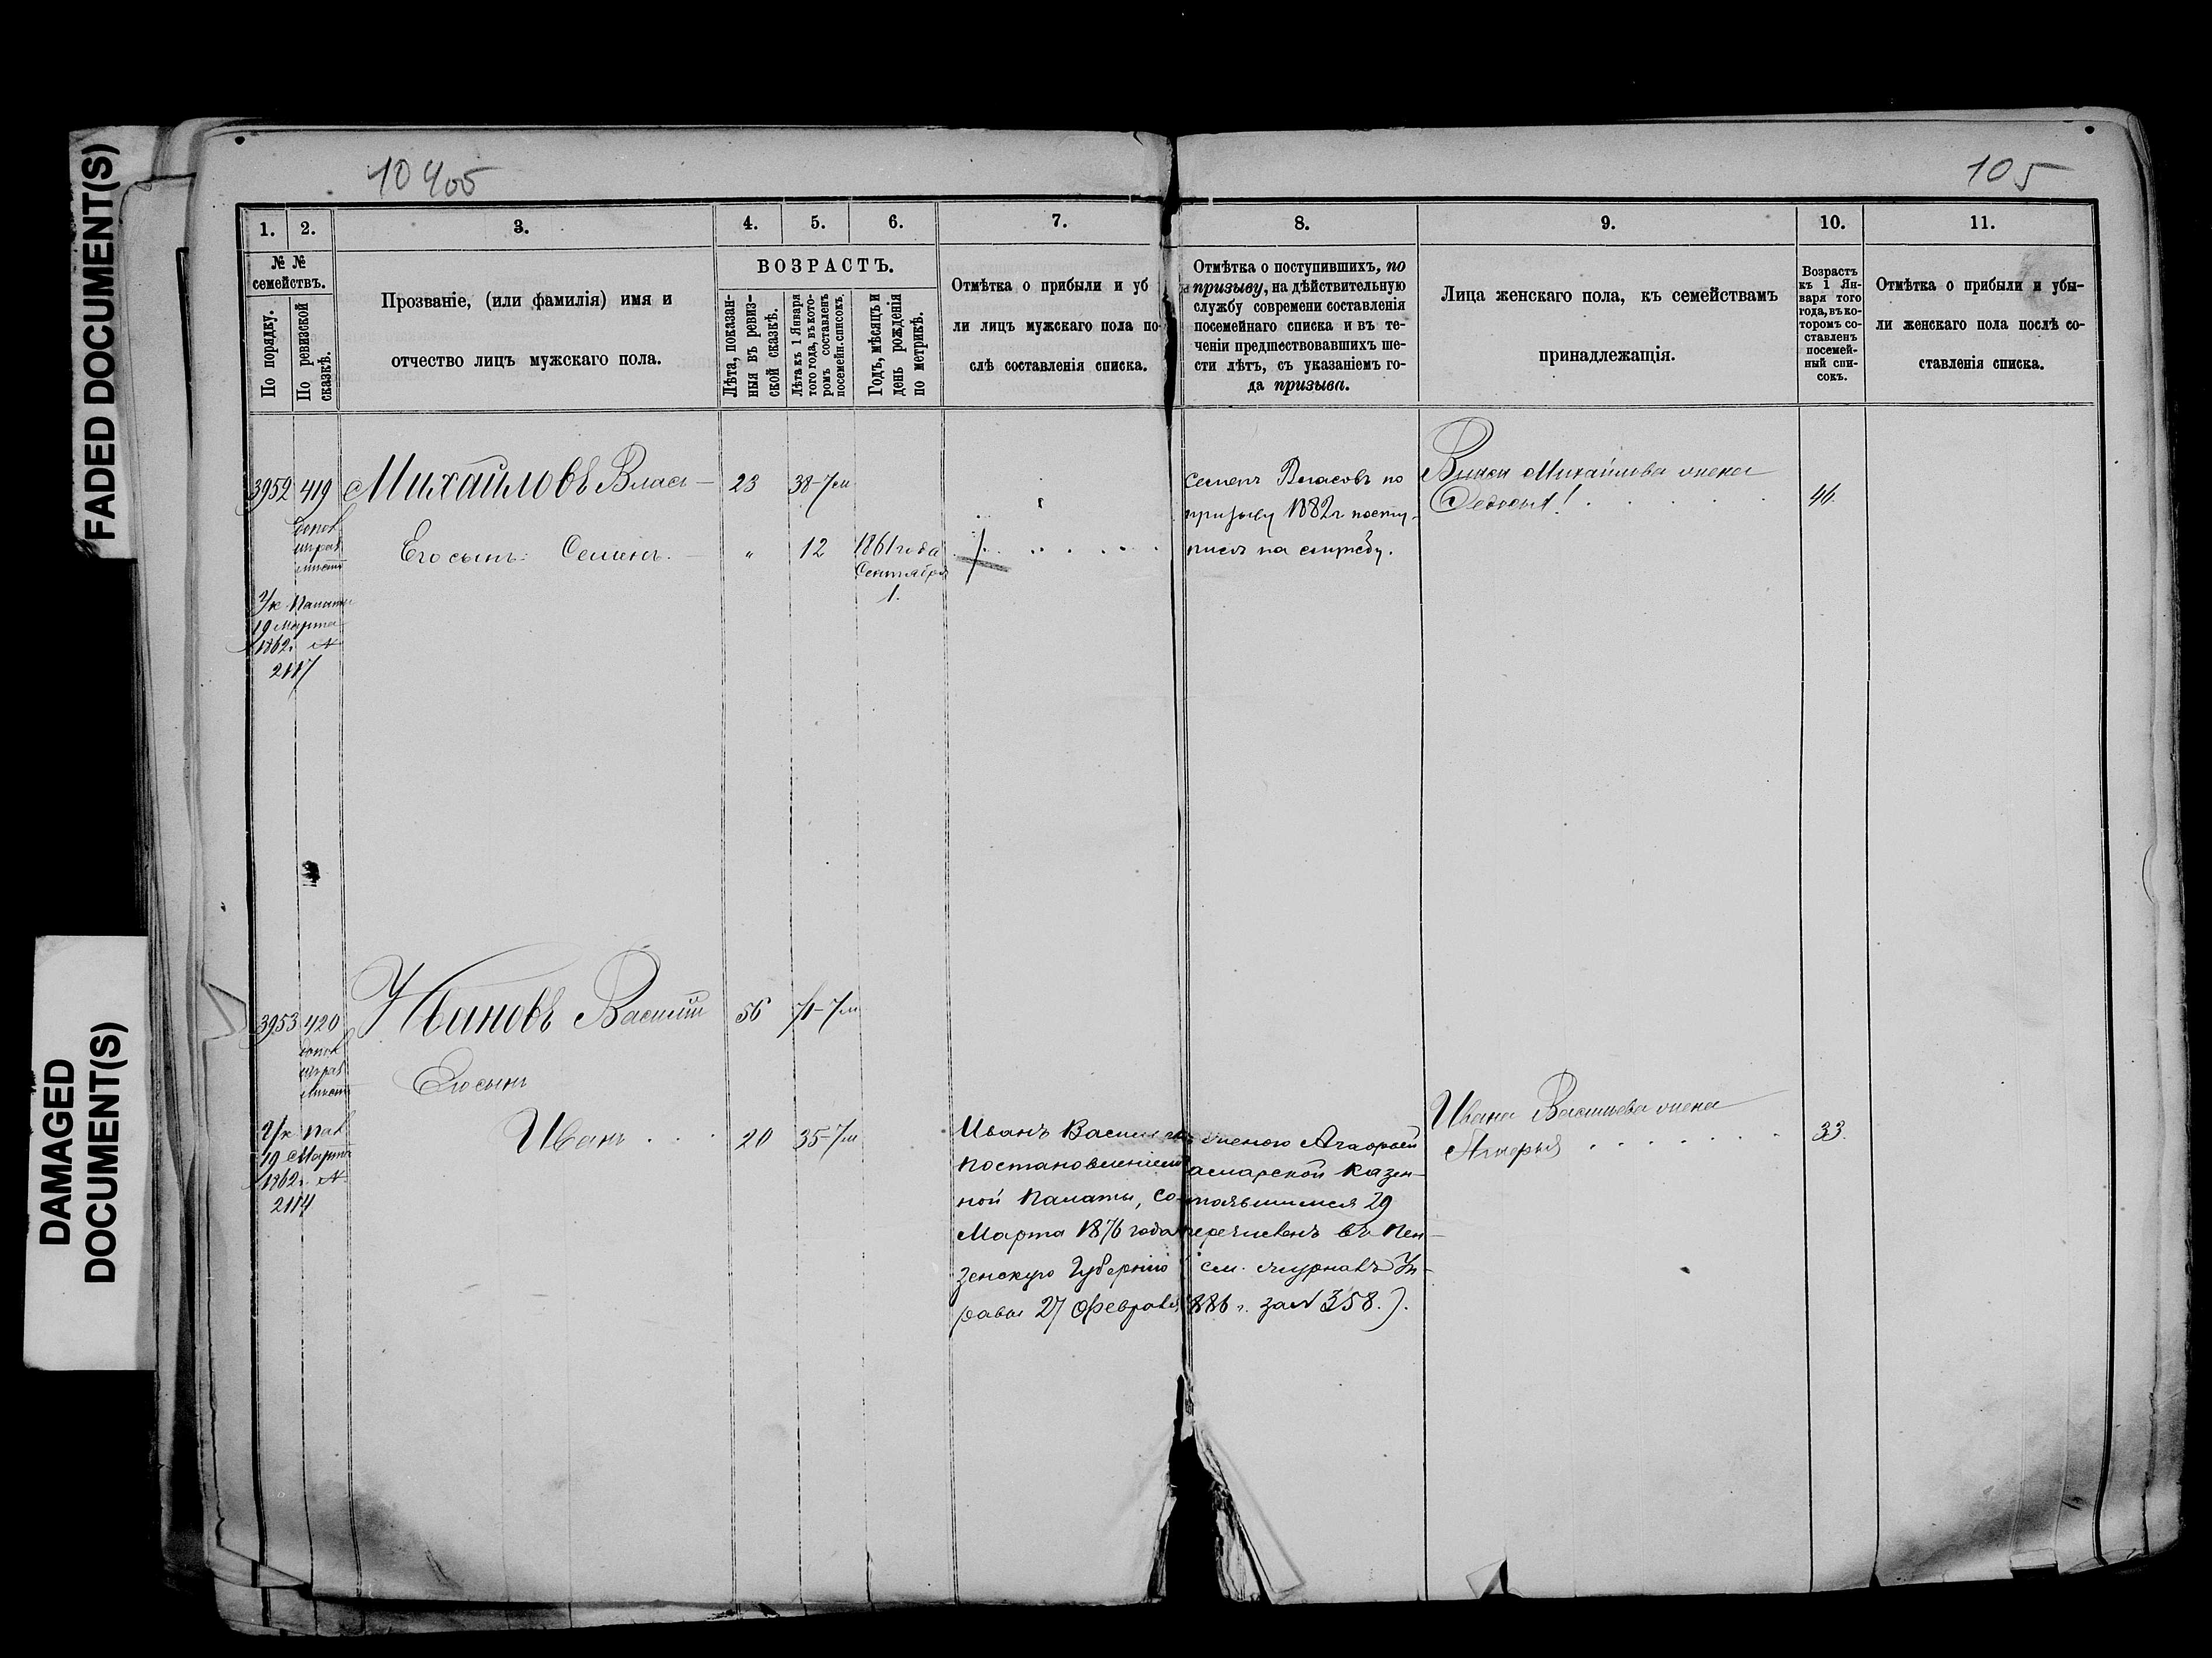 FADED DOCUMENT(S)
DAMAGED
DOCUMENT(S)
105
1.
2.
3.
4.
5.
6.
7.
8.
9.
10.
11.
№ №
семействъ.
По порядку.
По ревизской
сказкѣ.
Прозваніе, (или фамилія) имя и
отчество лицъ мужскаго пола.
ВОЗРАСТЪ.
Лѣта, показан-
ныя въ ревиз-
ской сказкѣ.
Лѣта къ 1 Января
того года, въ кото-
ромъ составленъ
посемейн. списокъ.
Годъ, мѣсяцъ и
день рожденія
по метрикѣ.
Отмѣтка о прибыли и уб
ли лицъ мужскаго пола по-
слѣ составленія списка.
Отмѣтка о поступившихъ, по
призыву, на дѣйствительную
службу современи составленія
посемейнаго списка и въ те-
ченіи предшествовавшихъ ше-
сти лѣтъ, съ указаніемъ го-
да призыва.
Лица женскаго пола, къ семействамъ
принадлежащія.
Возрастъ
къ 1 Ян-
варя того
года, въ ко-
торомъ со-
ставленъ
посемей-
ный спи-
сокъ.
Отмѣтка о прибыли и убы-
ли женскаго пола послѣ со-
ставленія списка.
3952 419 Михайловъ Власъ 23 38-7м
Его сынъ: Семенъ. " 12 1861 года
Сентября
1.
Ук. Палаты
19 Марта
1862г. №
2117
Семенъ Власовъ по
призыву 1882г посту-
пилъ на службу.
Власа Михайлова жена
Федосья 46
3953 420 Ивановъ Василій 56 71-7м
Его сынъ
Иванъ 20 35-7м
Ук. Пал.
19 Марта
1862г. №
2114
Иванъ Василь женою Агафьей
постановленіем амарской Казен-
ной Палаты, состоявшимся 29
Марта 1876 года перечисленъ въ Пен-
зенскую Губернію см. журналъ Уп-
равы 27 Февраля 1886 г. за № 358.).
Ивана Васильева жена
Агафья 33